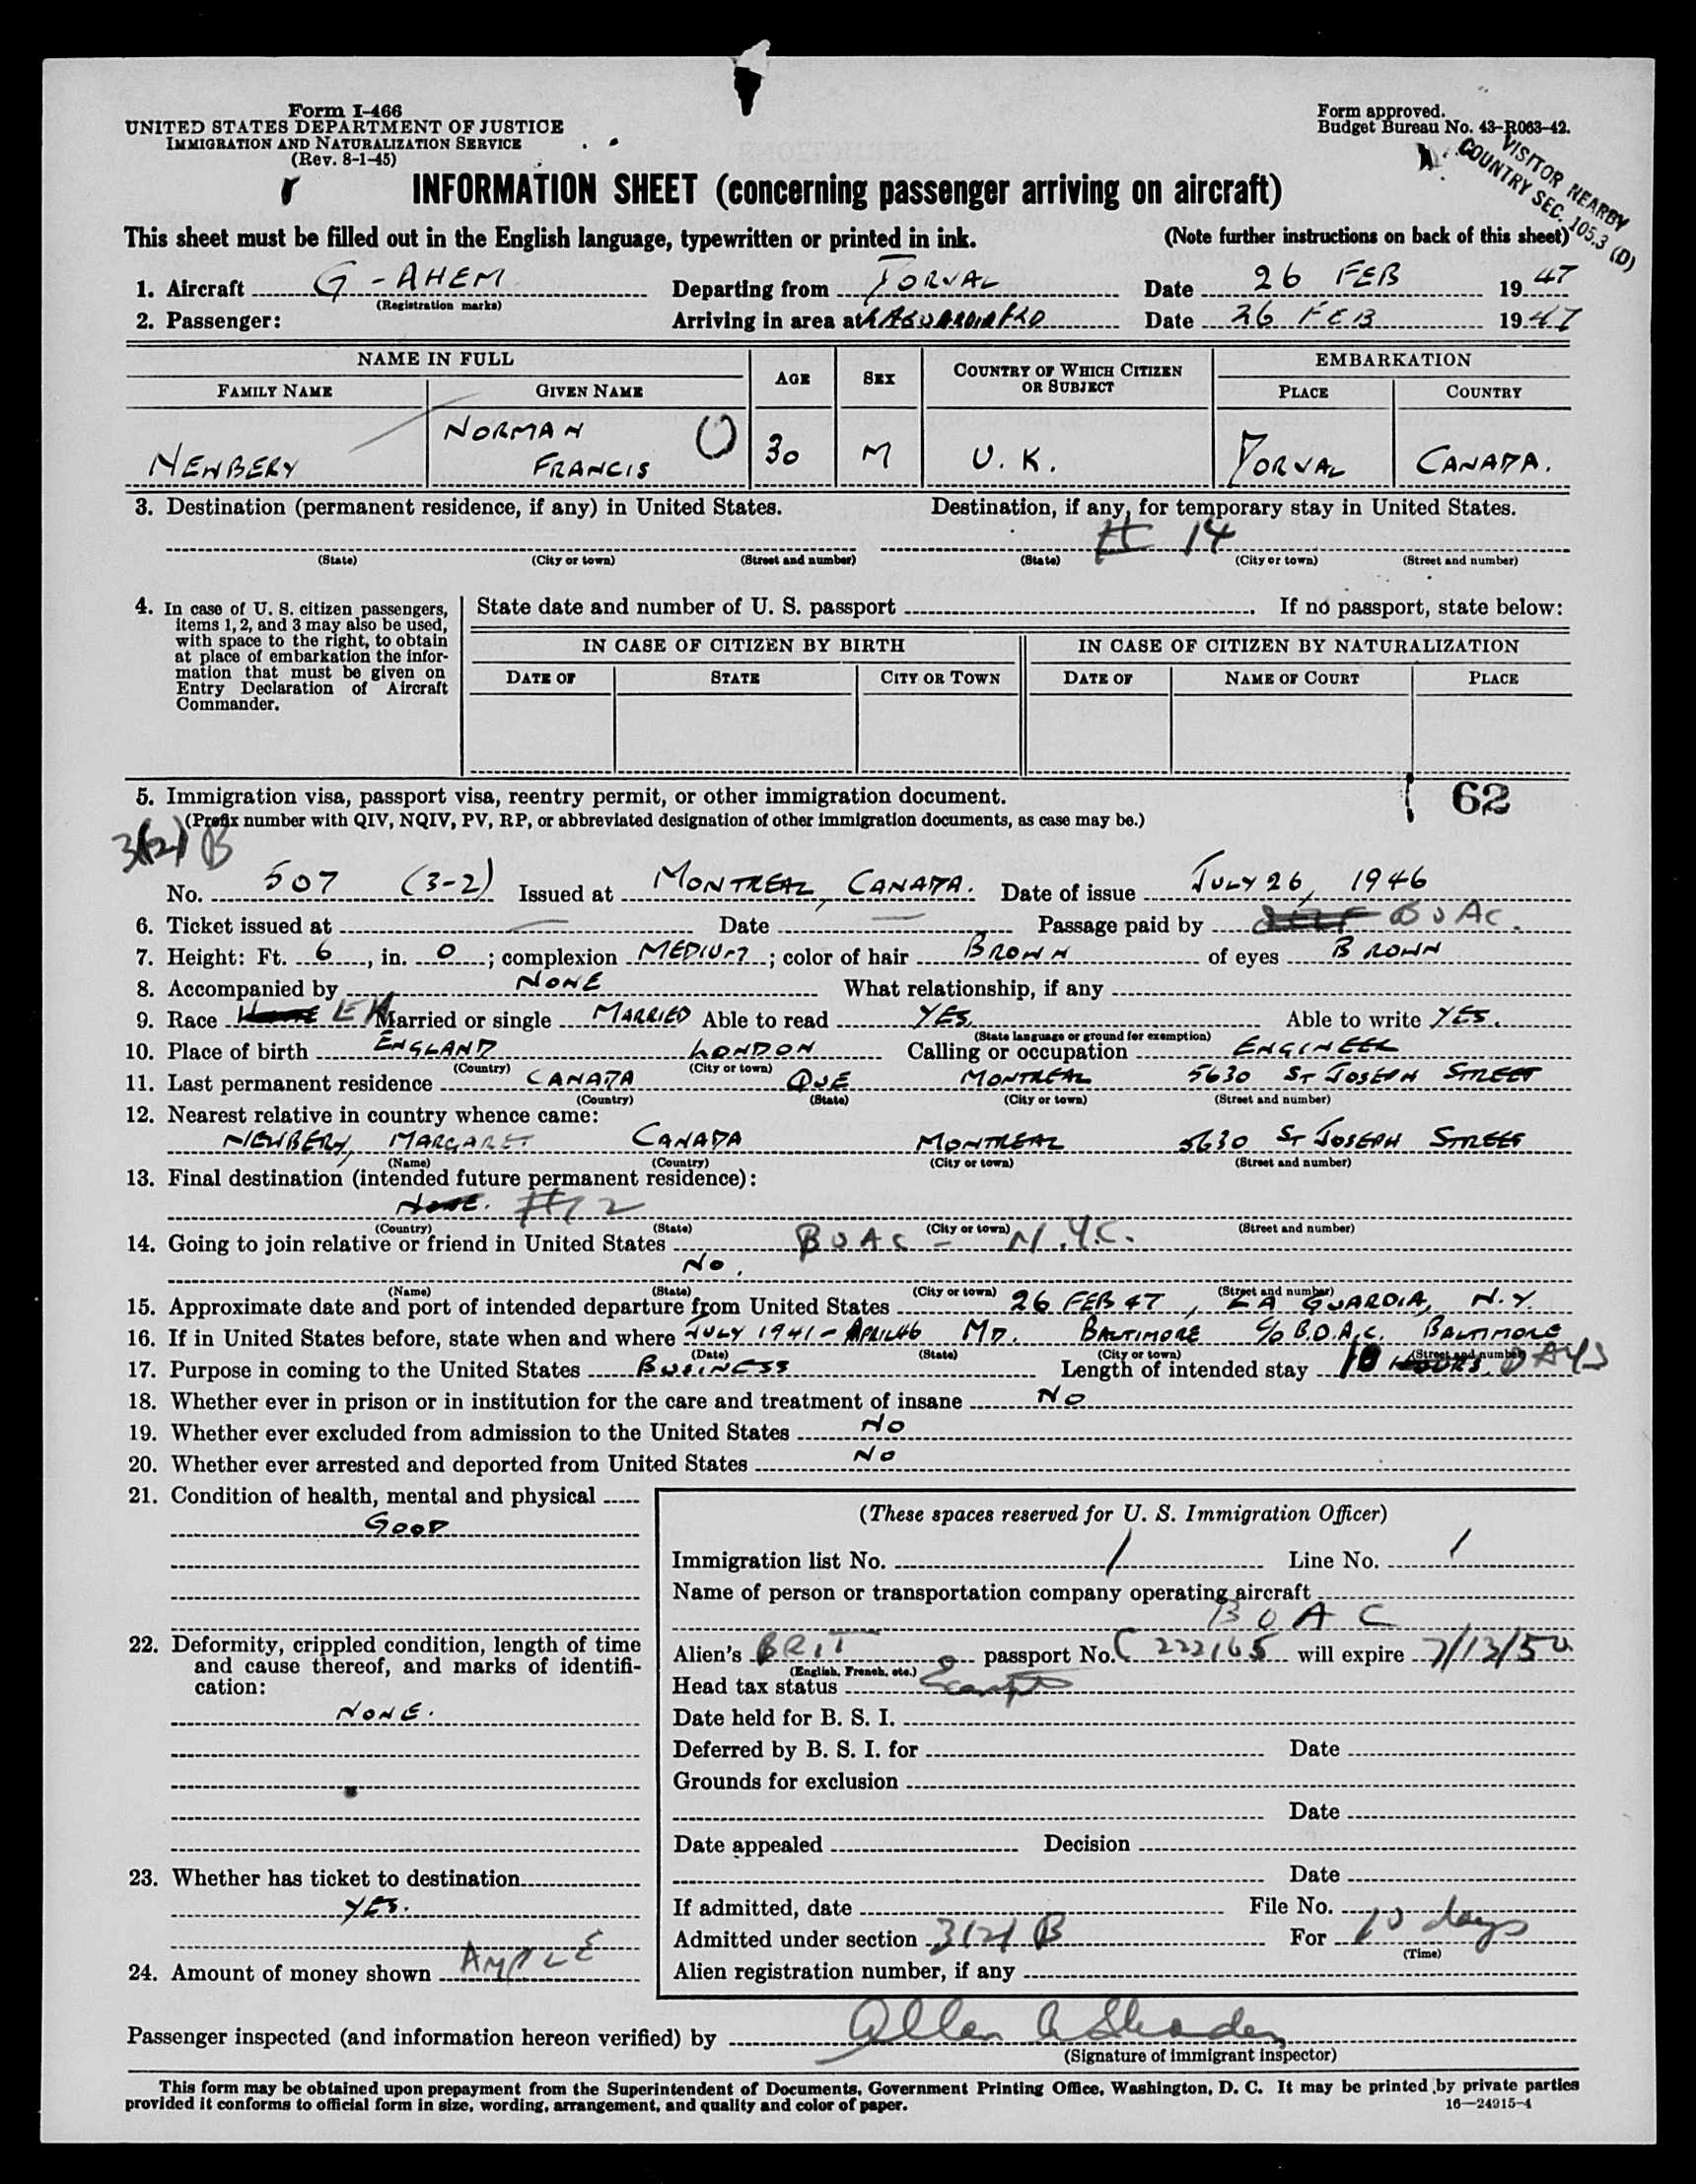 Form I-466
UNITED STATES DEPARTMENT OF JUSTICE
IMMIGRATION AND NATURALIZATION SERVICE
(Rev. 8-1-45)
Form approved.
Budget Bureau No. 43-R063-42.
VISITOR NEARBY
COUNTRY SEC. 105.3 (D)
INFORMATION SHEET (concerning passenger arriving on aircraft)
This sheet must be filled out in the English language, typewritten or printed in ink. (Note further instructions on back of this sheet)
1. Aircraft G-AHEM Departing from DORVAL Date 26 FEB 1947
(Registration marks)
2. Passenger: Arriving in area at LAGUARDIA FLD Date 26 FEB 1947
NAME IN FULL AGE SEX COUNTRY OF WHICH CITIZEN OR SUBJECT EMBARKATION
FAMILY NAME GIVEN NAME PLACE COUNTRY
NEWBERY NORMAN FRANCIS 30 M U.K. DORVAL CANADA.
3. Destination (permanent residence, if any) in United States. Destination, if any, for temporary stay in United States.
# 14
(State) (City or town) (Street and number) (State) (City or town) (Street and number)
4. In case of U. S. citizen passengers, items 1, 2, and 3 may also be used, with space to the right, to obtain at place of embarkation the information that must be given on Entry Declaration of Aircraft Commander.
State date and number of U. S. passport . If no passport, state below:
IN CASE OF CITIZEN BY BIRTH IN CASE OF CITIZEN BY NATURALIZATION
DATE OF STATE CITY OR TOWN DATE OF NAME OF COURT PLACE
62
5. Immigration visa, passport visa, reentry permit, or other immigration document.
(Prefix number with QIV, NQIV, PV, RP, or abbreviated designation of other immigration documents, as case may be.)
3(2) B
No. 507 (3-2) Issued at MONTREAL, CANADA. Date of issue JULY 26, 1946
6. Ticket issued at — Date — Passage paid by BOAC.
7. Height: Ft. 6, in. 0; complexion MEDIUM; color of hair BROWN of eyes BROWN
8. Accompanied by NONE What relationship, if any
9. Race Married or single MARRIED Able to read YES, Able to write YES.
(State language or ground for exemption)
10. Place of birth ENGLAND LONDON Calling or occupation ENGINEER
(Country) (City or town)
11. Last permanent residence CANADA QUE MONTREAL 5630 ST JOSEPH STREET
(Country) (State) (City or town) (Street and number)
12. Nearest relative in country whence came:
NEWBERY, MARGARET CANADA MONTREAL 5630 ST JOSEPH STREET
(Name) (Country) (City or town) (Street and number)
13. Final destination (intended future permanent residence):
NONE. #12
(Country) (State) (City or town) (Street and number)
14. Going to join relative or friend in United States BOAC - N.Y.C.
NO.
(Name) (State) (City or town) (Street and number)
15. Approximate date and port of intended departure from United States 26 FEB 47, LA GUARDIA, N.Y.
16. If in United States before, state when and where JULY 1941-APRIL46 MD. BALTIMORE C/O B.O.A.C. BALTIMORE
(Date) (State) (City or town) (Street and number)
17. Purpose in coming to the United States BUSINESS Length of intended stay 10 HOURS. DAYS
18. Whether ever in prison or in institution for the care and treatment of insane NO
19. Whether ever excluded from admission to the United States NO
20. Whether ever arrested and deported from United States NO
21. Condition of health, mental and physical
GOOD
22. Deformity, crippled condition, length of time and cause thereof, and marks of identification:
NONE.
23. Whether has ticket to destination
YES.
24. Amount of money shown AMPLE
(These spaces reserved for U. S. Immigration Officer)
Immigration list No. 1 Line No. 1
Name of person or transportation company operating aircraft
BOAC
Alien's BRIT passport No. C 222165 will expire 7/13/50
(English, French, etc.)
Head tax status Exempt
Date held for B. S. I.
Deferred by B. S. I. for Date
Grounds for exclusion
Date
Date appealed Decision
Date
If admitted, date File No.
Admitted under section 3(2) B For 10 days
(Time)
Alien registration number, if any
Passenger inspected (and information hereon verified) by Allan
(Signature of immigrant inspector)
This form may be obtained upon prepayment from the Superintendent of Documents, Government Printing Office, Washington, D. C. It may be printed by private parties
provided it conforms to official form in size, wording, arrangement, and quality and color of paper. 16—24915-4